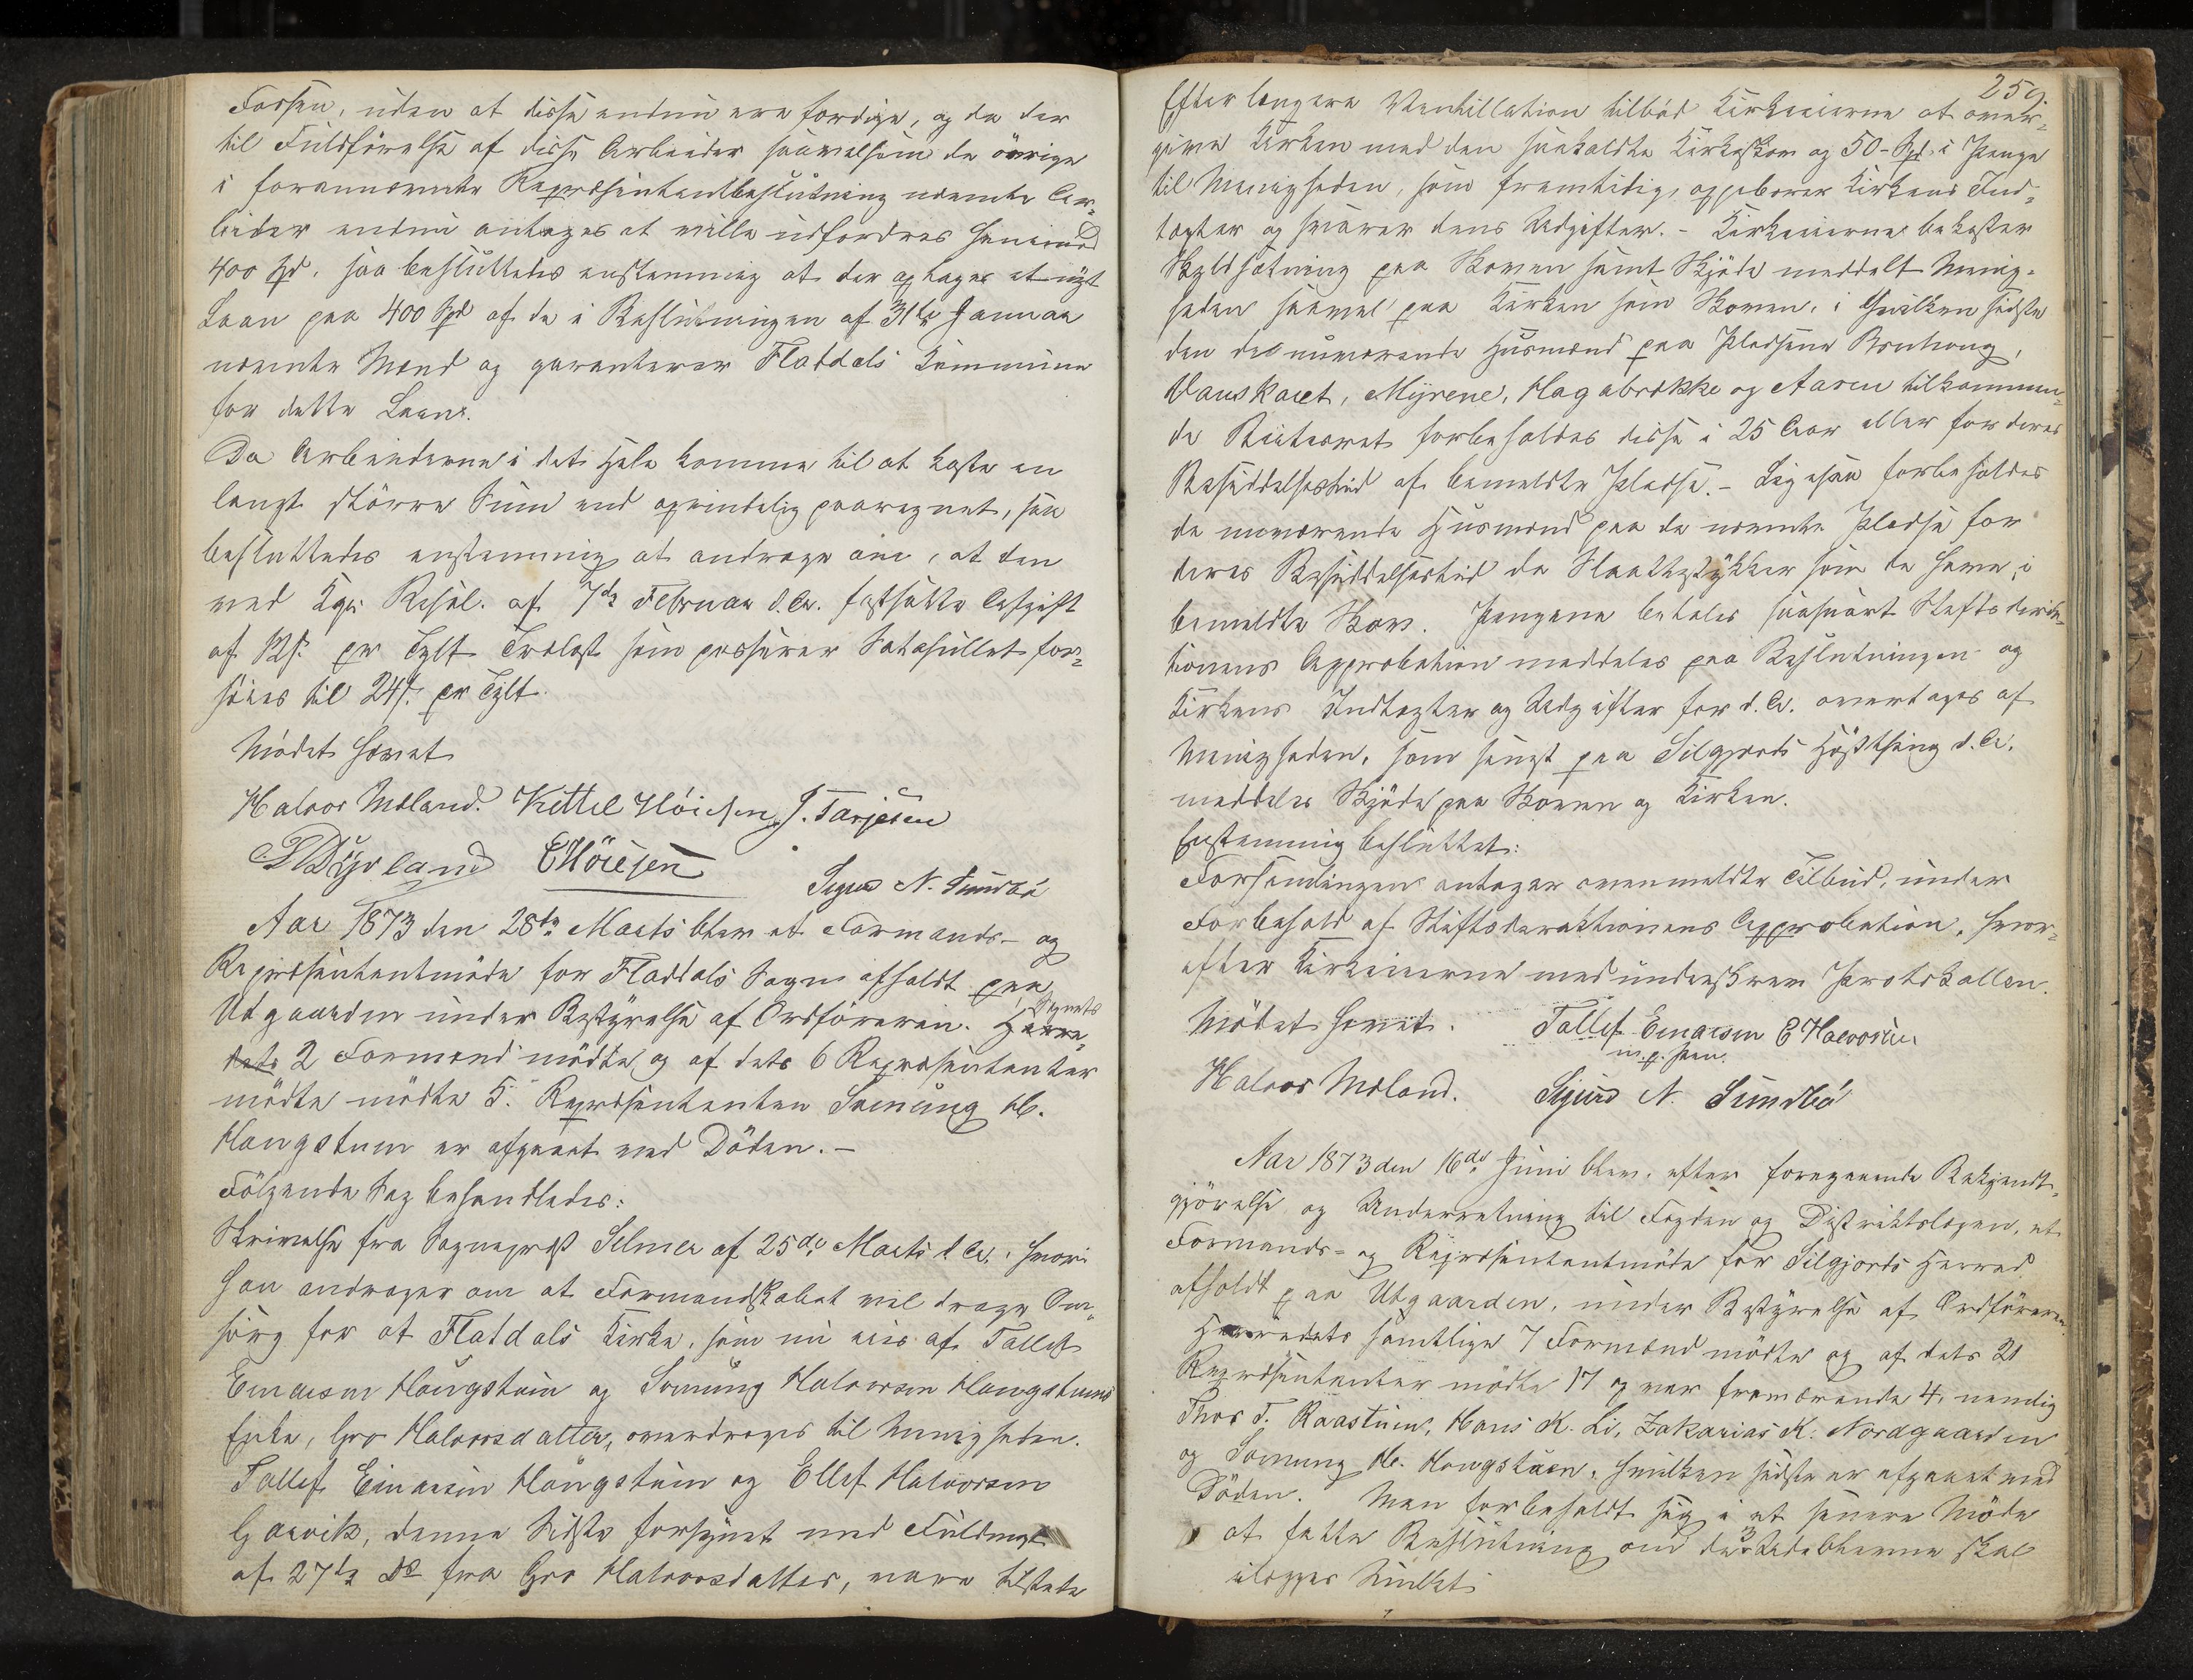 Fossen, uden at disse endnu ere færdige, og da der
til Fuldførelse af disse Arbeider saavelsom de øvrige
i forannævnte Repræsentantbeslutning nævnte Ar-
beider endnu antages at ville udfordres henimod
400 Spd. saa besluttedes enstemmig at der optages et nyt
Laan paa 400 Spd af de i Beslutningen af 31te Januar
nævnte Mænd og garanterer Flatdals Kommune
for dette Laan.
Da Arbeiderne i det Hele komme til at koste en
langt større Sum end oprindelig paaregnet, saa
besluttedes enstemmig at andrage om, at den
ved Kgl. Resol. af 7de Februar d. A. fastsatte Afgift
af 12 s. pr Tylt Trælast som passerer forhøies
høies til 24 s. pr Tylt.
Mødet hævet
Halvor Moland. Kittel Høiesen J. Tarjesen
Dyrland E Høiesen
Sigurd N. Sundbö
Aar 1873 den 28de Marts blev et Formands- og
Repræsentantmøde for Flatdals Sogn afholdt paa
Utgaarden under Bestyrelse af Ordføreren. Sognets
2 Formænd mødte, og af dets 6 Repræsentanter
mødte mødte 5. Repræsentanten Sveinung H.
Haugstuen er afgaaet ved Døden. -
Følgende Sag behandledes:
Skrivelse fra Sognepræst Selmer af 25de Marts d. A. hvori
han andrager om at Formandskabet vil drage Om-
sorg for at Flatdals Kirke, som nu eies af Tallef
Einarsen Haugstuen og Sveinung Halvorsen Haugstuens
Enke, Gro Halvorsdatter, overdrages til Menigheden.
Tallef Einarsen Haugstuen og Ellef Halvorsen
Garvik, denne Sidste forsynet med Fuldmagt
af 27de Ds fra Gro Halvorsdatter, vare tilstede
259.
Efter længere Ventillation tilbød Kirkeeierne at over-
give Kirken med den saakaldte Kirkeskov og 50 Spd. i Penge
til Menigheden, som fremtidig oppebærer Kirkens Ind-
tægter og svarer dens Udgifter. - Kirkeeierne bekoster
Skyldsætning paa Skoven samt Skjøde meddelt Menig-
heden saavel paa Kirken som Skoven, i hvilken sidste
den de nuværende Husmænd paa Pladsene
Vauskaret, Myrene, Hagabrekke og Aaren tilkommen-
de forbeholdes disse i 25 Aar eller for deres
Besiddelsestid af bemeldte Pladse. - Ligesaa forbeholdes
de nuværende Husmænd paa de nævnte Pladse for
deres Besiddelsestid de Slaattestykker som de have i
bemeldte Skov. Pengene betales saasnart Stiftsdirek-
tionens Approbation meddeles paa Beslutningen og
Kirkens Indtægter og Udgifter for d. A. overtages af
Menigheden, som senest paa Silgjords Høstthing d. A.
meddeles Skjøde paa Skoven og Kirken.
Enstemmig besluttet:
Forsamlingen antager ovenmeldte Tilbud, under
Forbehold af Stiftsdirektionens Approbation, hvor-
efter Kirkeeierne medunderskrev Protokollen.
Mødet hævet. Tallef Einarsen E Halvorsen
m. p. Pen.
Halvor Moland. Sigurd N. Sundbö
Aar 1873 den 16de Juni blev, efter foregaaende Bekjendt-
gjørelse og Underretning til Fogden og Distriktslægen, et
Formands- og Repræsentantmøde for Silgjords Herred
afholdt paa Utgaarden, under Bestyrelse af Ordføreren.
Herredets samtlige 7 Formænd mødte og af dets 21
Repræsentanter mødte 17 og var fraværende 4, nemlig
Thor T. Raastuen, Hans K. Li, Zakarias K. Nordgaarden
og Sveinung H. Haugstuen, hvilken sidste er afgaaet ved
Døden. Man forbeholdt sig i et senere Møde
at fatte Beslutning om de 3 skal
ilægges Mulkt.